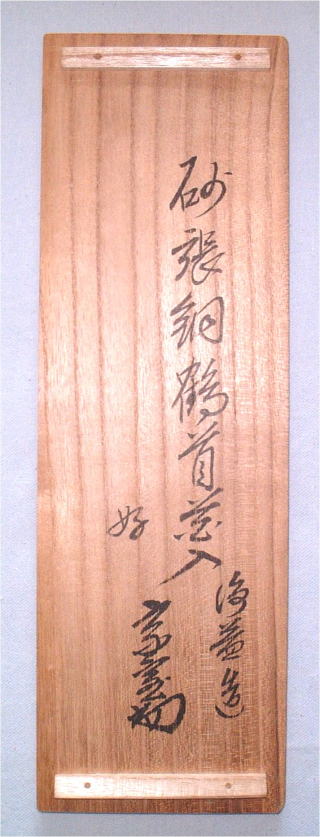 砂張銅鶴首花入
海益造
好